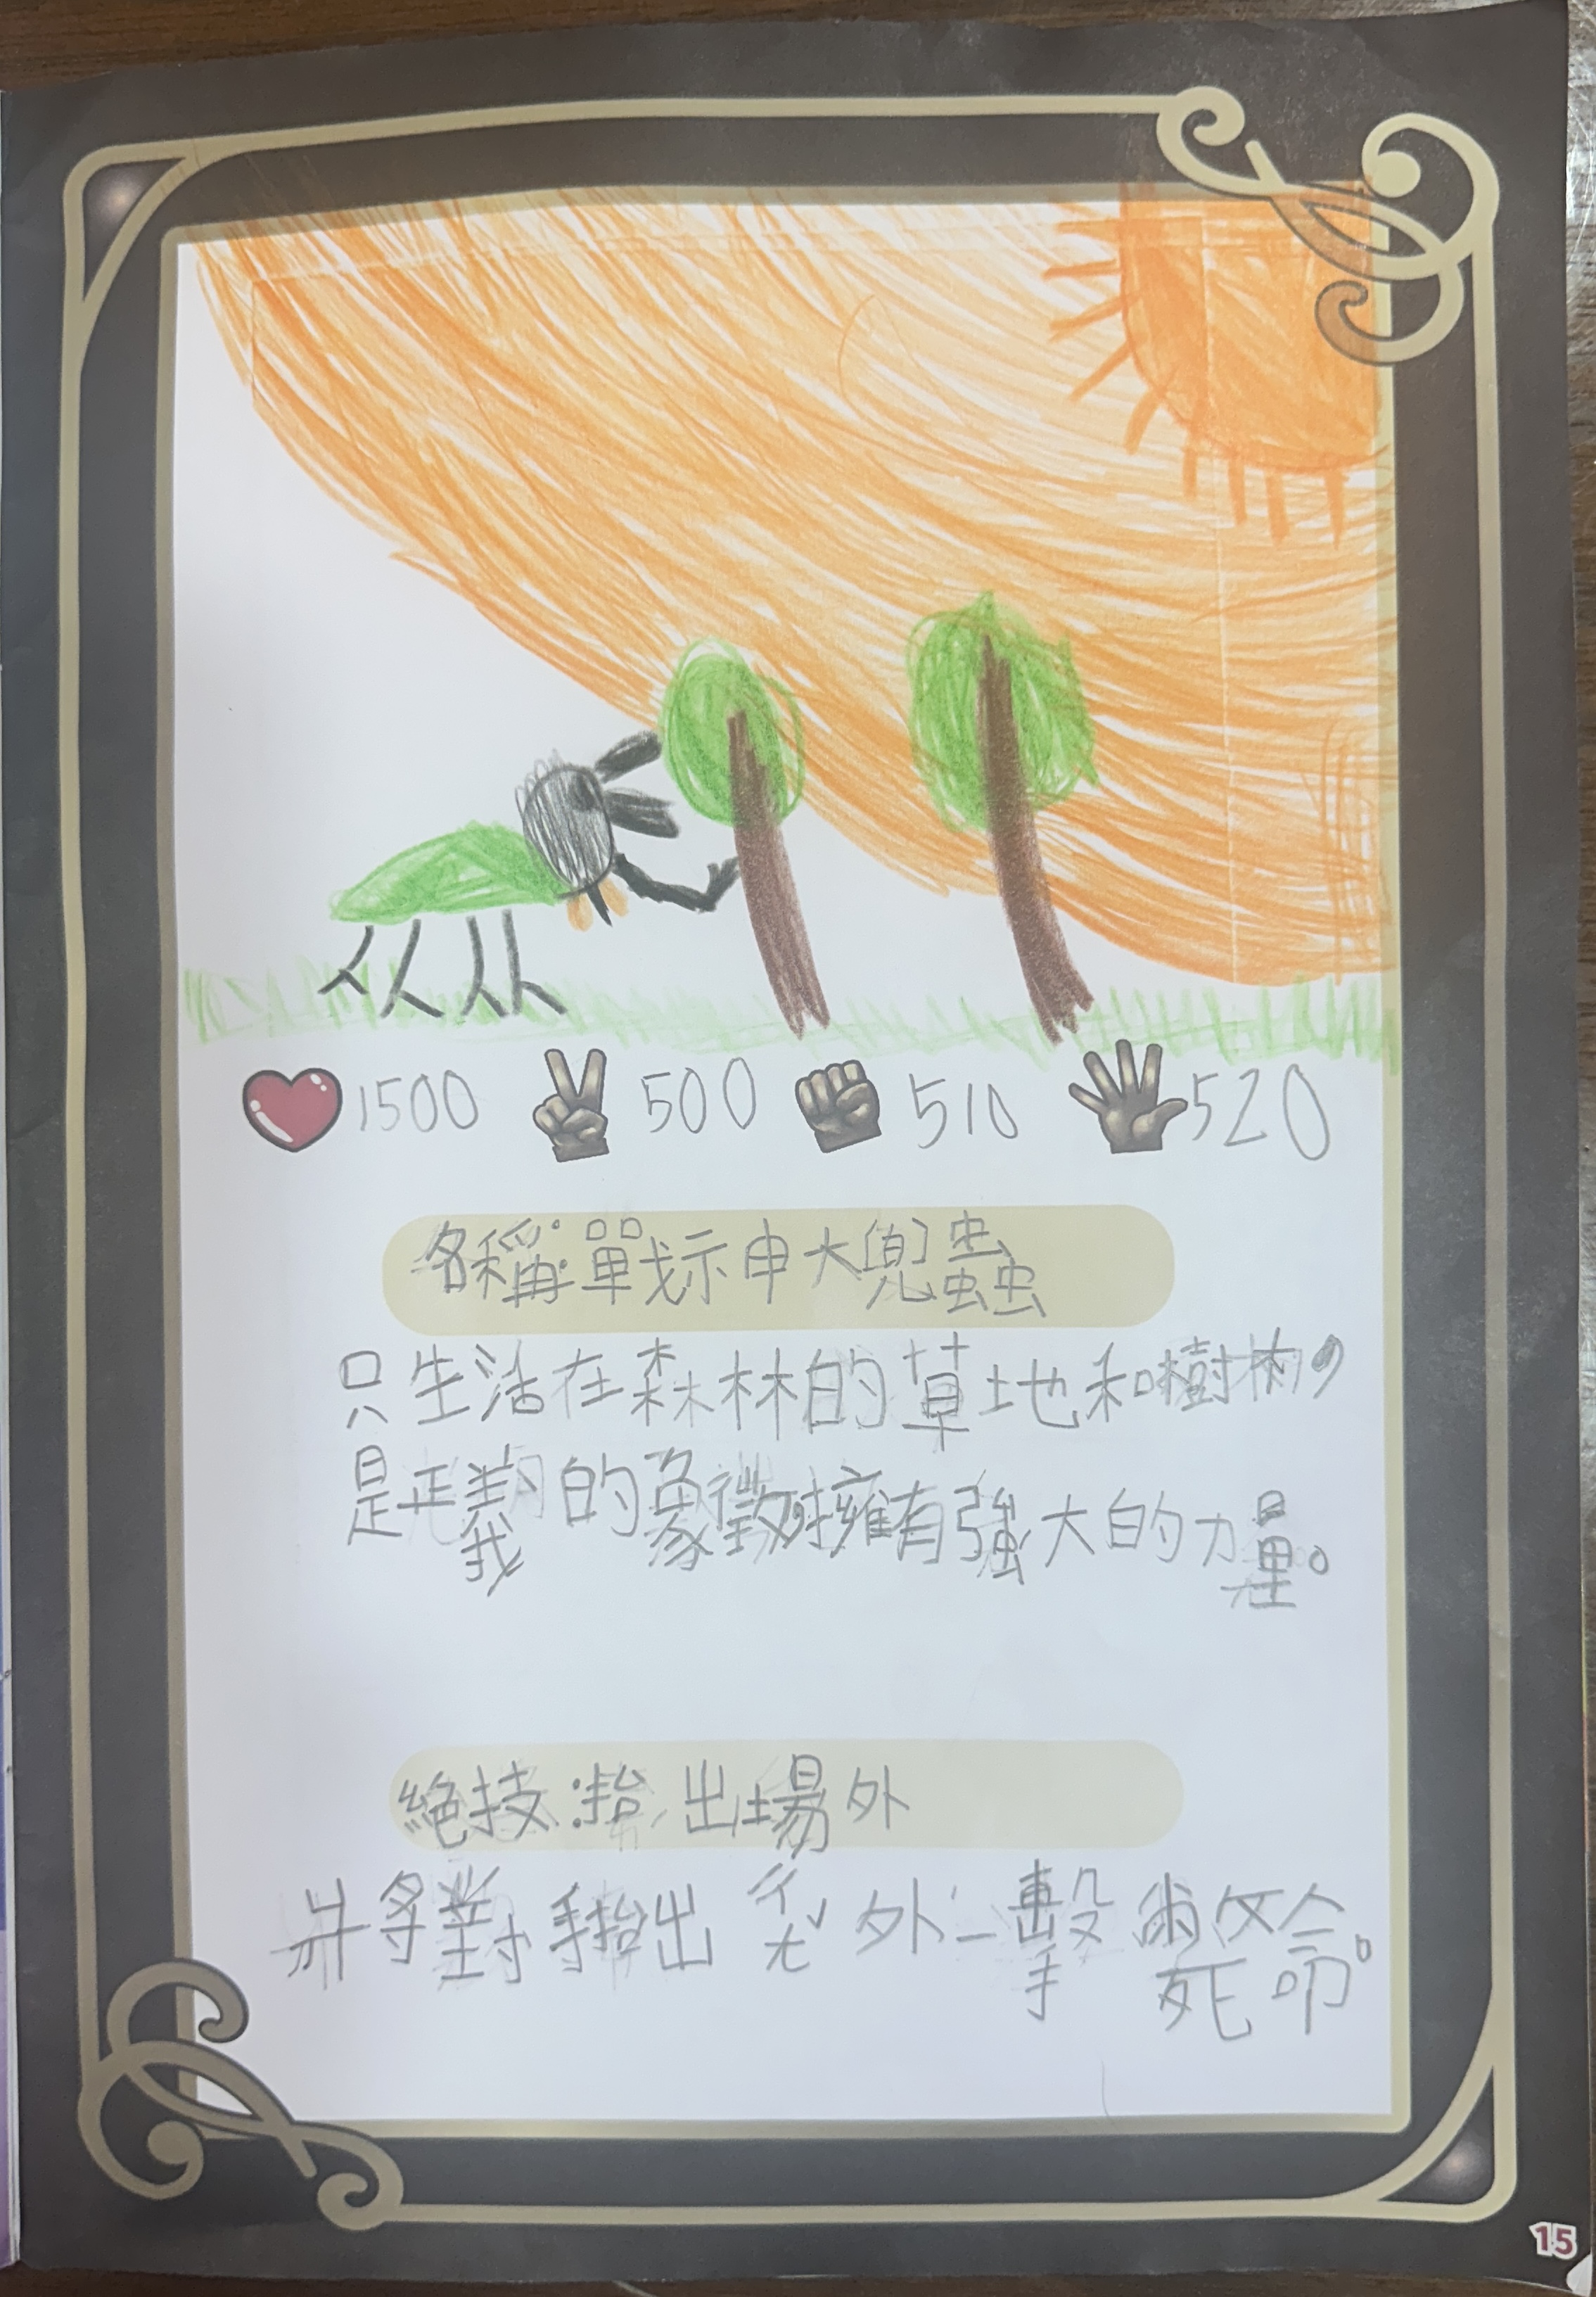 1500 500 510 520
名稱:單戈示申大兜蟲
只生活在森林的草地和樹林,
是正義的象徵擁有強大的力量。
絕技:抬出場外
將對手抬出 外一擊斃命。
15